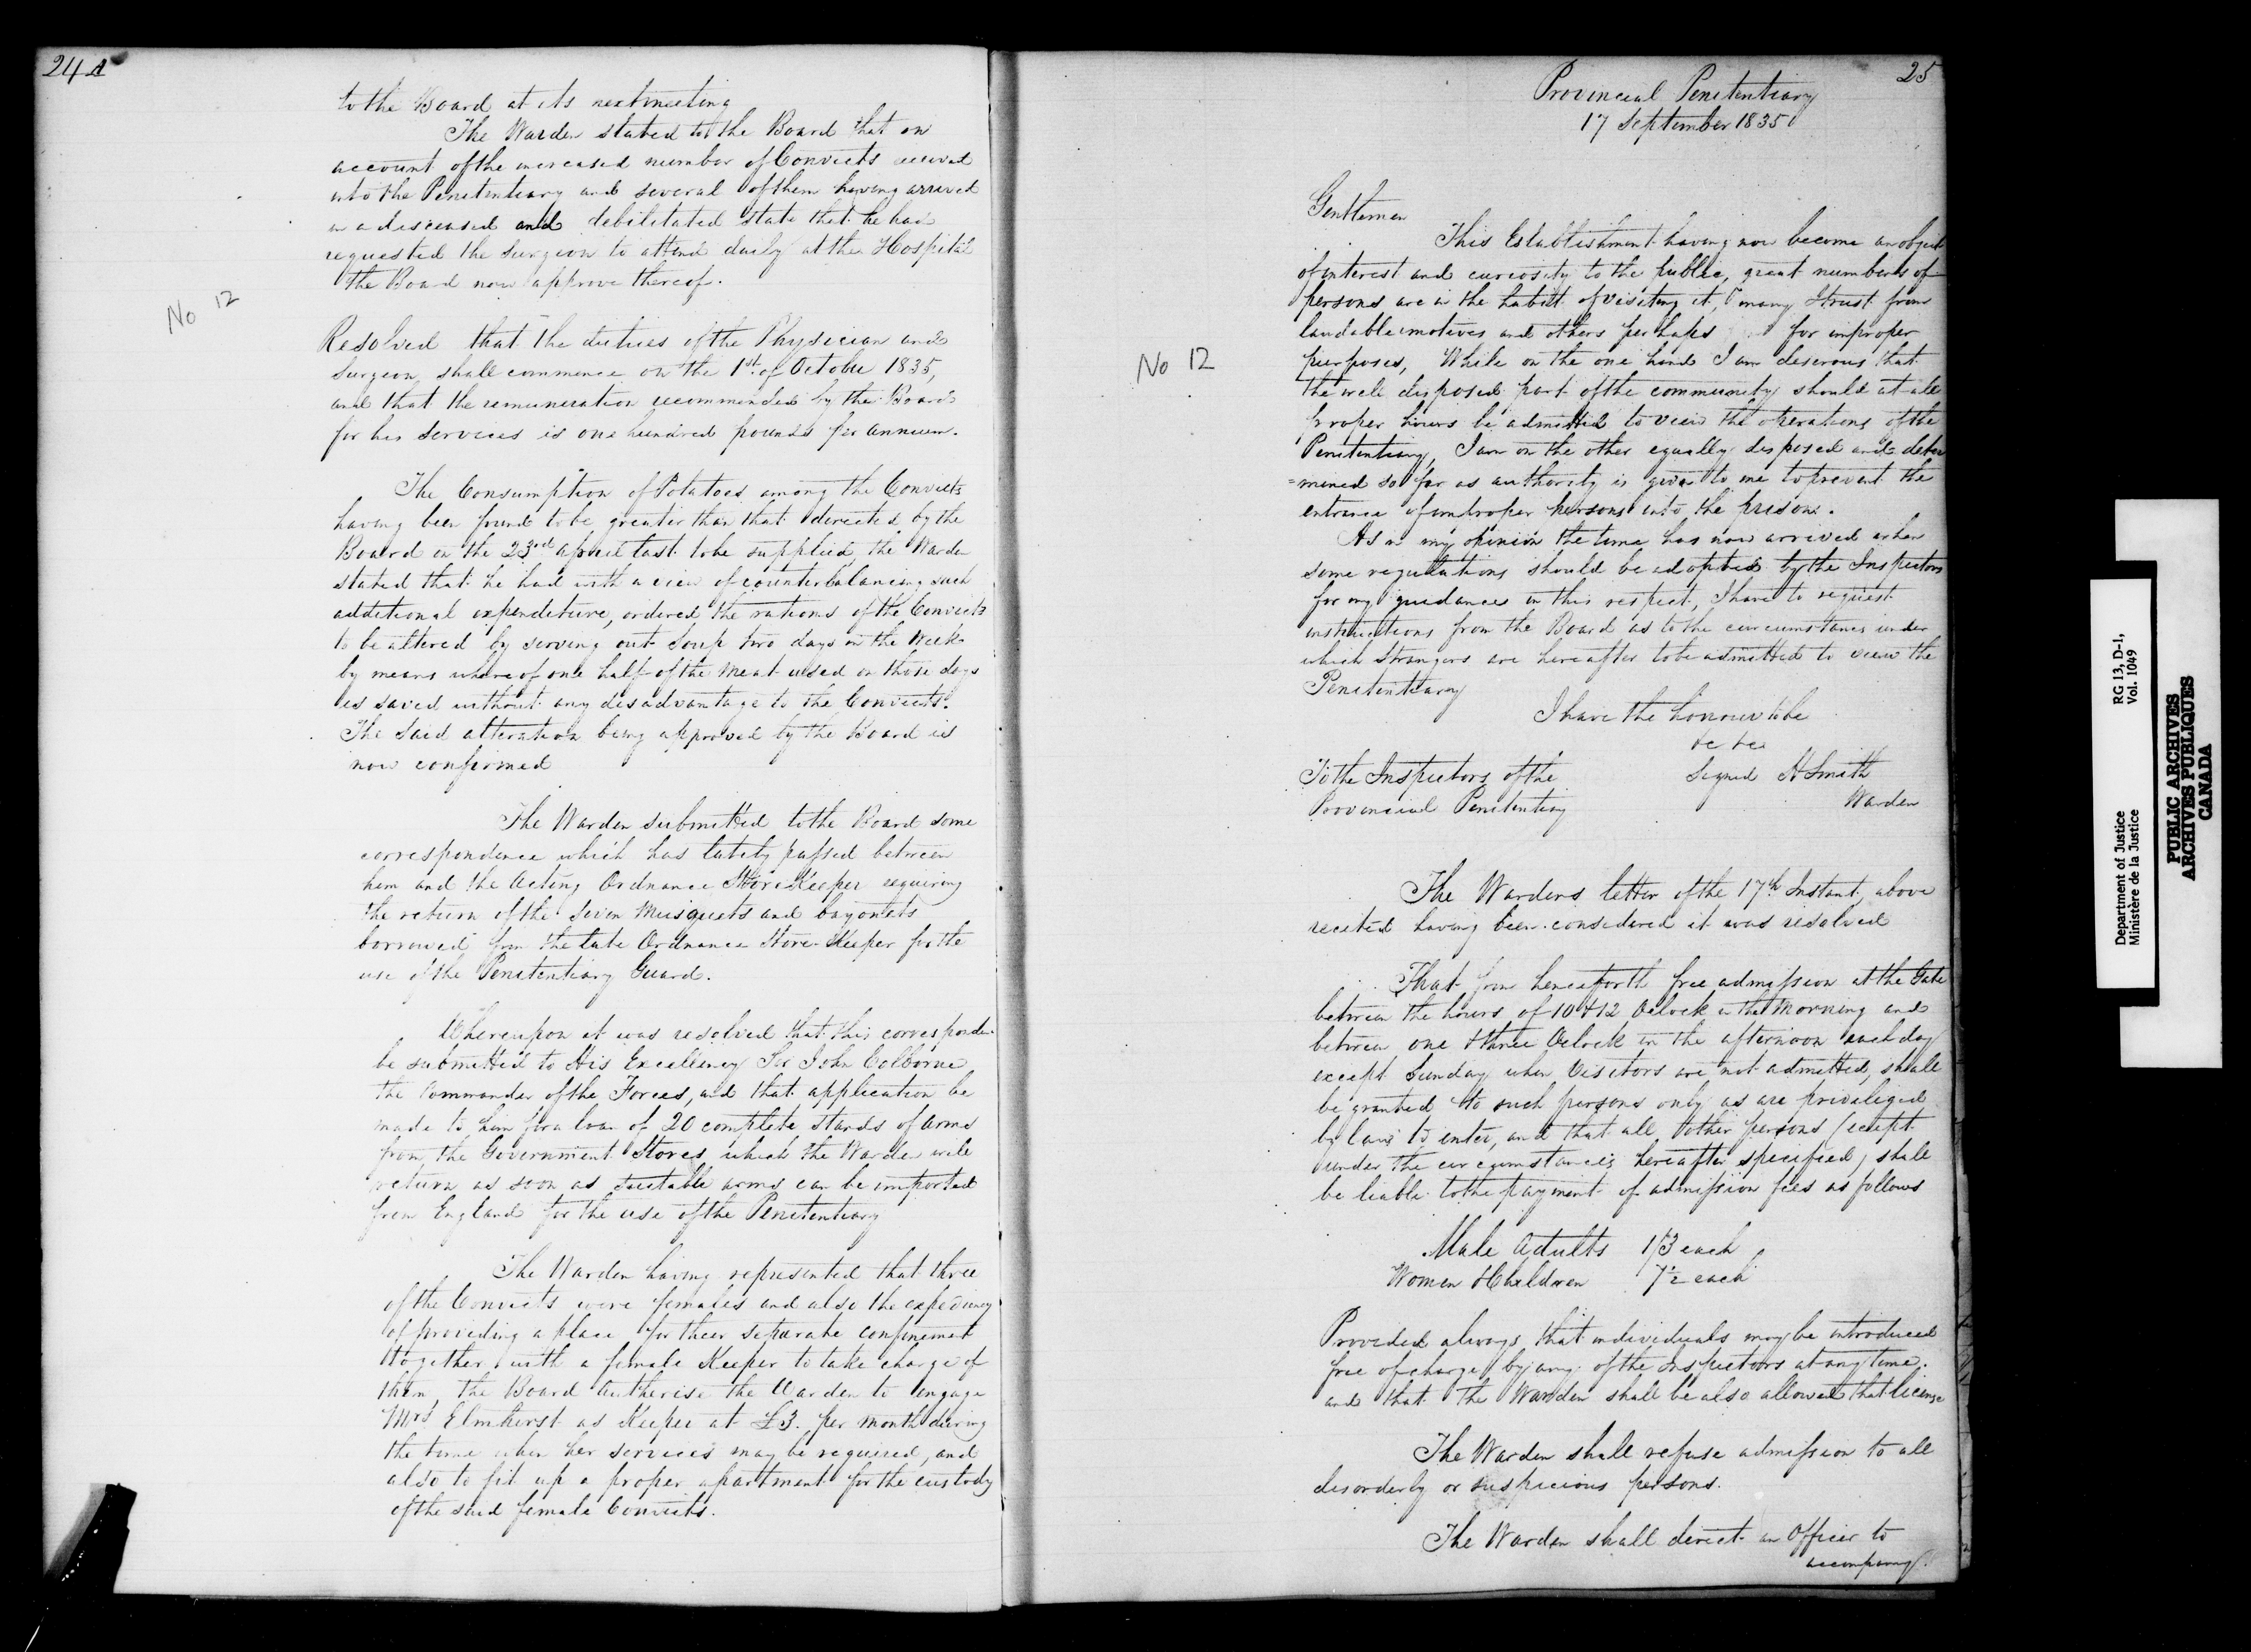 24 A
to the Board at its next meeting
The Warden stated to the Board that on
account of the increased number of Convicts received
into the Penitentiary and several of them having arrived
in a diseased and debilitated state that he had
requested the Surgeon to attend daily at the Hospital
the Board now approve thereof.
No 12
Resolved that the duties of the Physician and
Surgeon shall commence on the 1st. of October 1835,
and that the remuneration recommended by the Board
for his services is one hundred pounds per annum.
The Consumption of Potatoes among the Convicts
having been found to be greater than that directed by the
Board on the 23rd april last to be supplied, the Warden
stated that he had with a view of counterbalancing such
additional expenditure, ordered the rations of the Convicts
to be altered by serving out Soup two days in the Week
by means whereof one half of the Meat used on those days
is saved without any disadvantage to the Convicts.
The Said alteration being approved by the Board is
now confirmed
The Warden submitted to the Board some
correspondence which has lately passed between
him and the Acting Ordnance Store Keeper requiring
the return of the Seven Musquets and bayonets
borrowed from the late Ordnance Store Keeper for the
use of the Penitentiary Guard.
Whereupon it was resolved that this corresponden
be submitted to His Excellency Sir John Colborne
the Commander of the Forces, and that application be
made to him for a loan of 20 complete Stands of Arms
from the Government Stores which the Warden will
return as soon as suitable arms can be imported
from England for the use of the Penitentiary
The Warden having represented that three
of the Convicts were females and also the expediency
of providing a place for their separate confinement
together with a female Keeper to take charge of
them, the Board Autherise the Warden to engage
Mrs Elmhirst as Keeper at £3. per month during
the time when her services may be required, and
also to fit up a proper apartment for the custody
of the said female Convicts.
25
Provincial Penitentiary
17 September 1835
Gentlemen
This Establishment having now become an object
of interest and curiosity to the public, great numbers of
persons are in the habit of visiting it, many I trust from
laudable motives and others perhaps for improper
purposes, While on the one hand I am deserous that
the well disposed part of the community should at all
proper hours be admitted to view the operations of the
Penitentiary, I am on the other equally disposed and deter
=mined so far as authority is given to me to prevent the
entrance of improper persons into the prison.
No 12
As in my opinion the time has now arrived when
some regulations should be adopted by the Inspectors
for my guidance in this respect, I have to request
instructions from the Board as to the circumstances under
which Strangers are hereafter to be admitted to view the
Penitentiary
I have the honour to be
&c &c
To the Inspectors of the
Provincial Penitentiary
Signed H Smith
Warden
The Wardens letter of the 17th Instant, above
recited having been considered it was resolved
That from henceforth free admission at the Gate
between the hours of 10 & 12 Oclock in the Morning and
between one & three Oclock in the afternoon each day
except Sunday when Visitors are not admitted, shall
be granted to such persons only as are priveleged
by law to enter, and that all other persons (except
under the circumstances hereafter specified) shall
be liable to the payment of admission fees as follows
Male Adults 1/3 each
Women & Children 7½ each
Provided always, that individuals may be introduced
free of charge by any of the Inspectors at any time.
and that the Warden shall be also allowed that license
The Warden shall refuse admission to all
disorderly or suspicious persons.
The Warden shall direct an Officer to
accompany
Department of Justice
Ministère de la Justice
RG 13, D-1,
Vol. 1049
PUBLIC ARCHIVES
ARCHIVES PUBLIQUES
CANADA